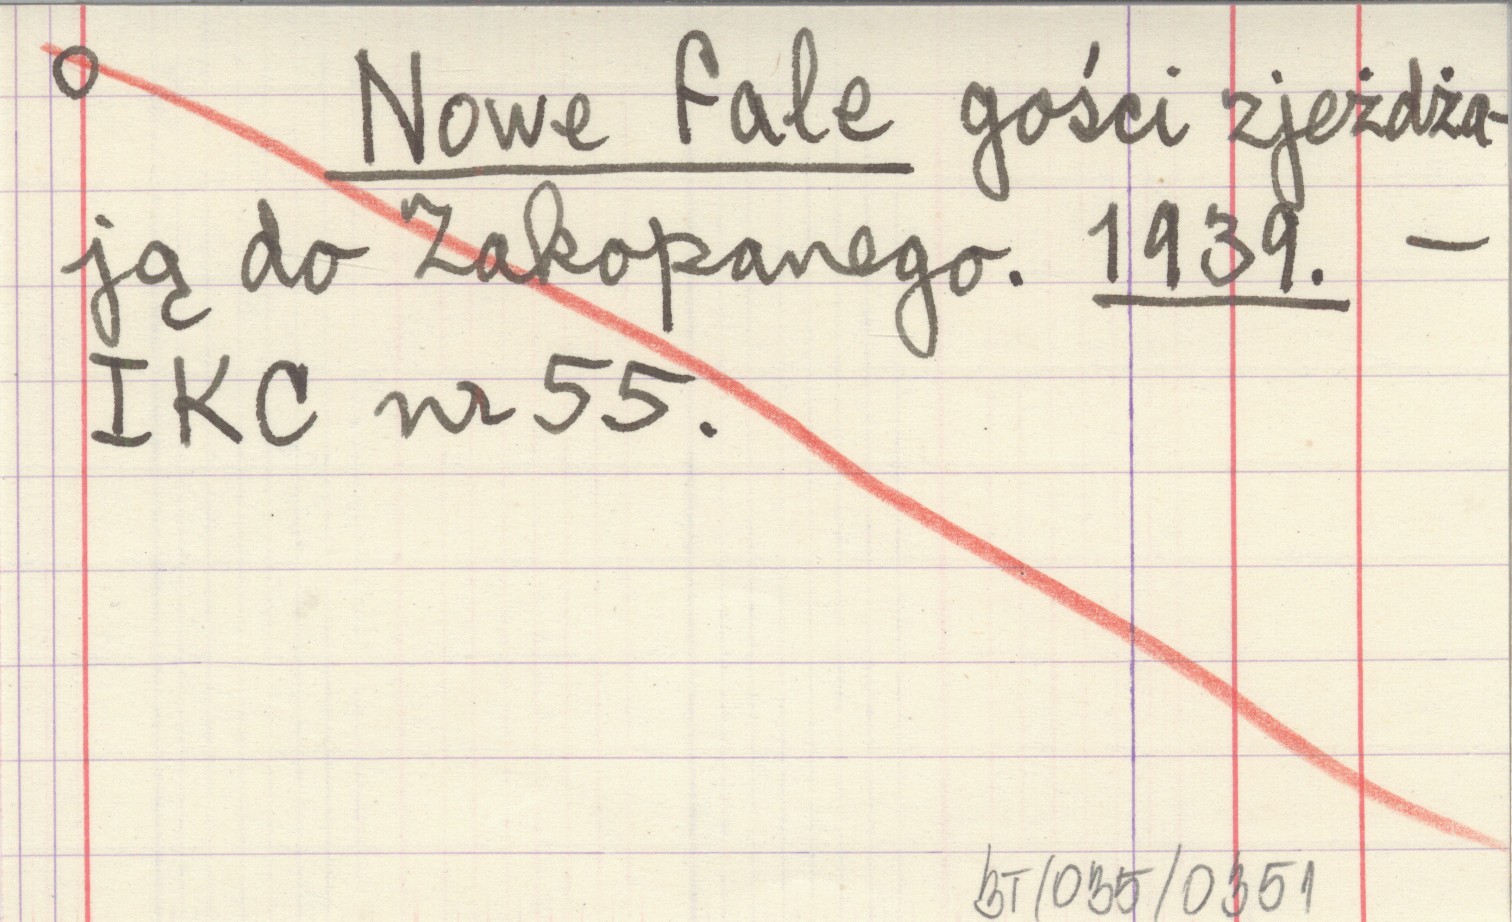 Nowe fale gości zjeżdża-
ją do Zakopanego. 1939. —
IKC nr 55.
BT/035/0351